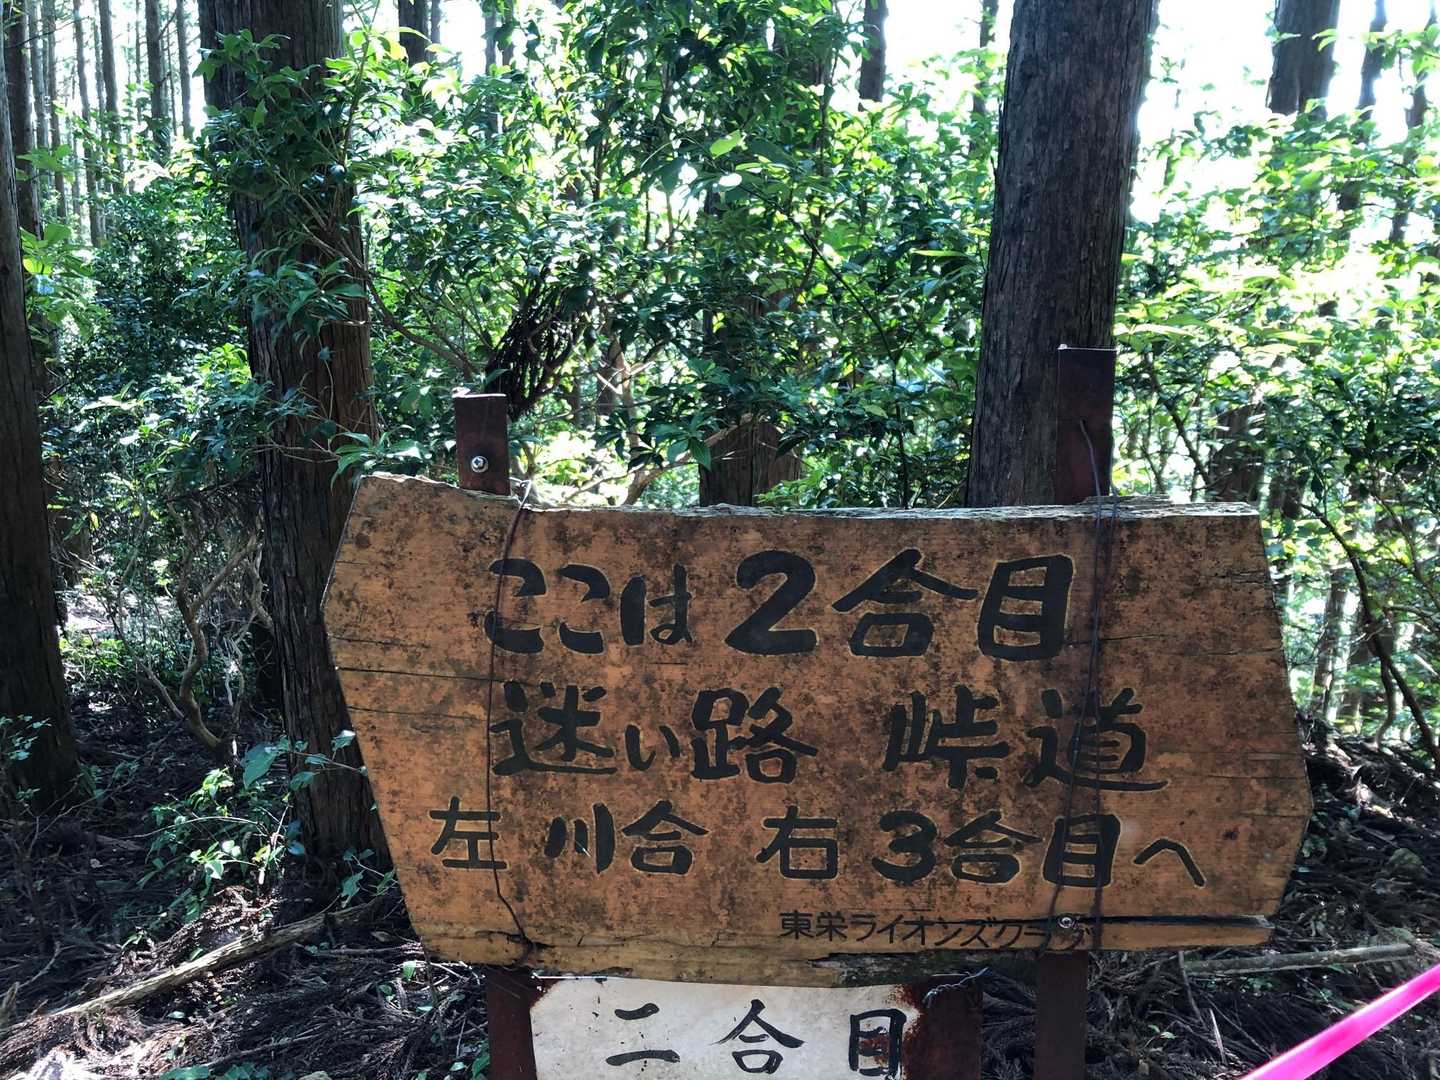 ここは2合目
迷い路 峠道
左 川合 右 3合目へ
東栄ライオンズクラブ
二合目